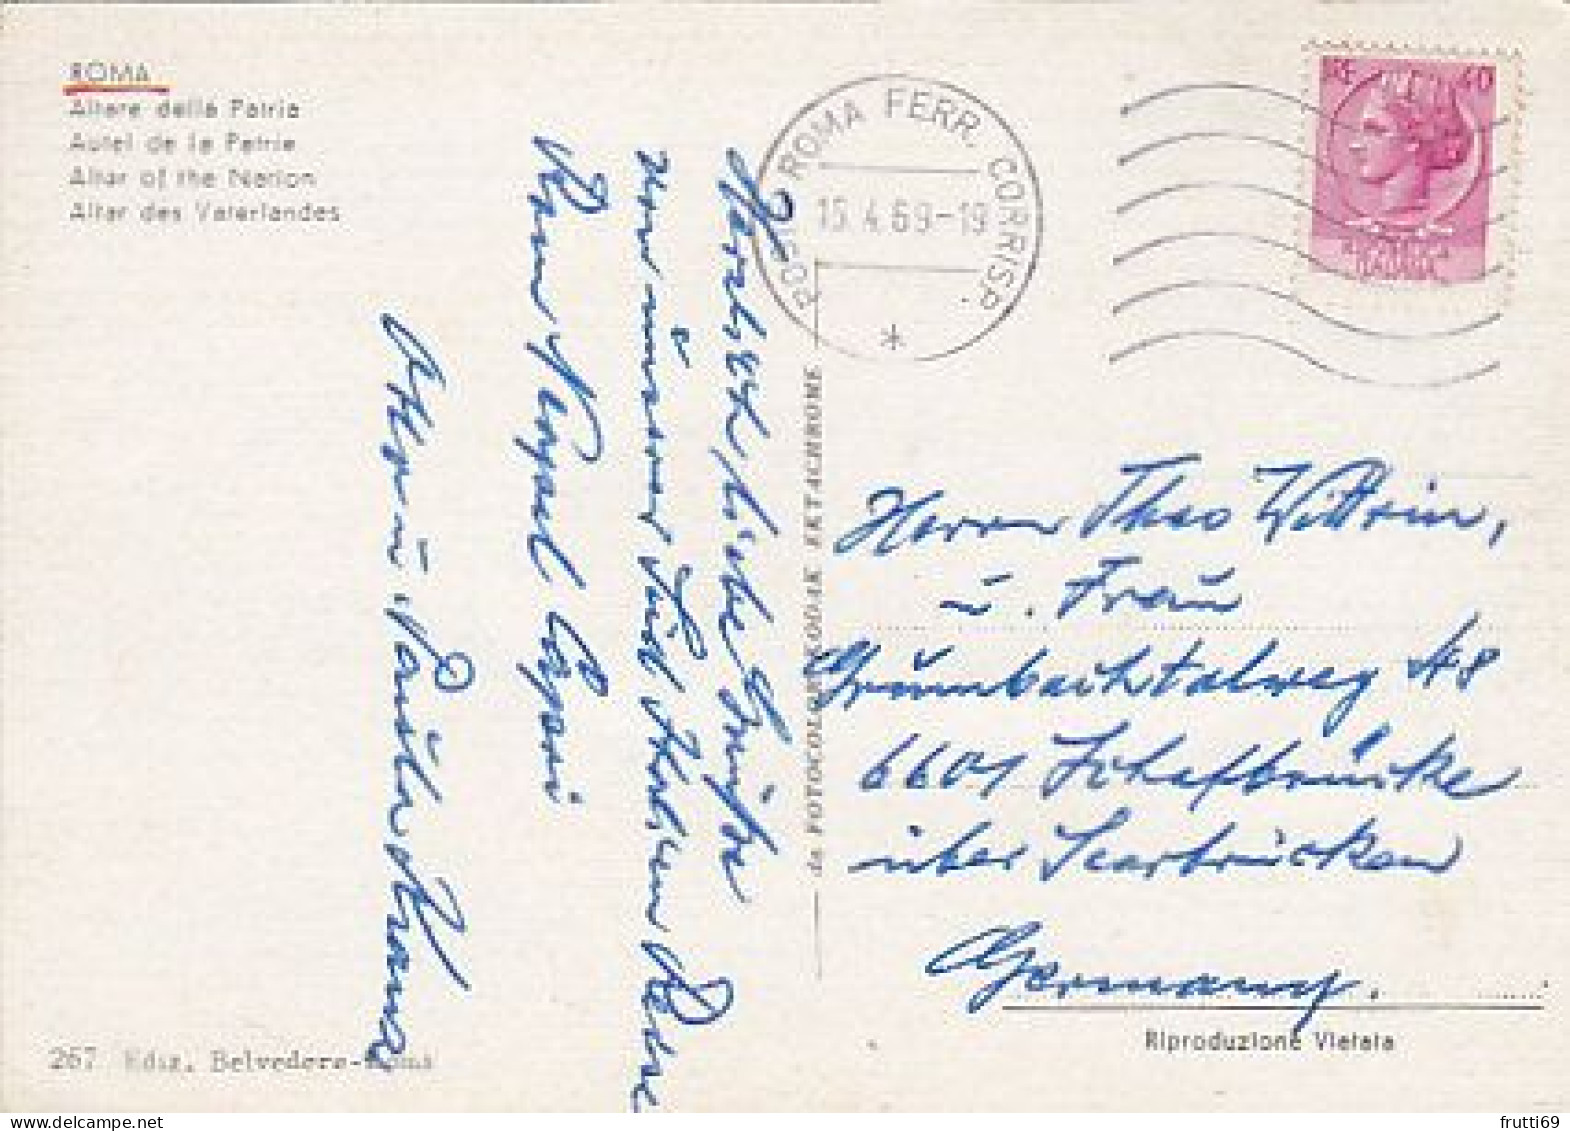 ROMA
Altare della Patria
Autel de la Patrie
Altar of the Nation
Altar des Vaterlandes
POSTE ROMA FERR. CORRISP.
15.4.69-19
*
LIRE 40
REPUBBLICA
ITALIANA
Herzlich liebe Grüße
von unserer Süd
Rom Neapel Capri
Paula
da FOTOCOLOR KODAK EKTACHROME
Herrn Theo Wittrin,
u. Frau
Grumbachtalweg 48
6601 Schafbrücke
über Saarbrücken
Germany.
Riproduzione Vietata
267 Ediz. Belvedere-Roma
frutti69